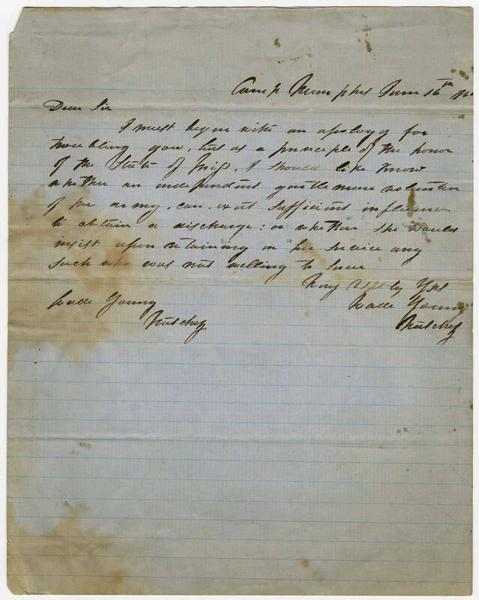 Camp Memphis June 16th
Dear Sir
I must begin with an apology for
troubling you, but as a principle of the honor
of the State of Miss, I should like know
whether an independent gentleman volunteer
of the army, can exert sufficient influence
to obtain a discharge: or whether she would
insist upon retaining in her service any
such who was not willing to serve
Very by Yrs
Wade Young
Wade Young
Natchez
Natchez